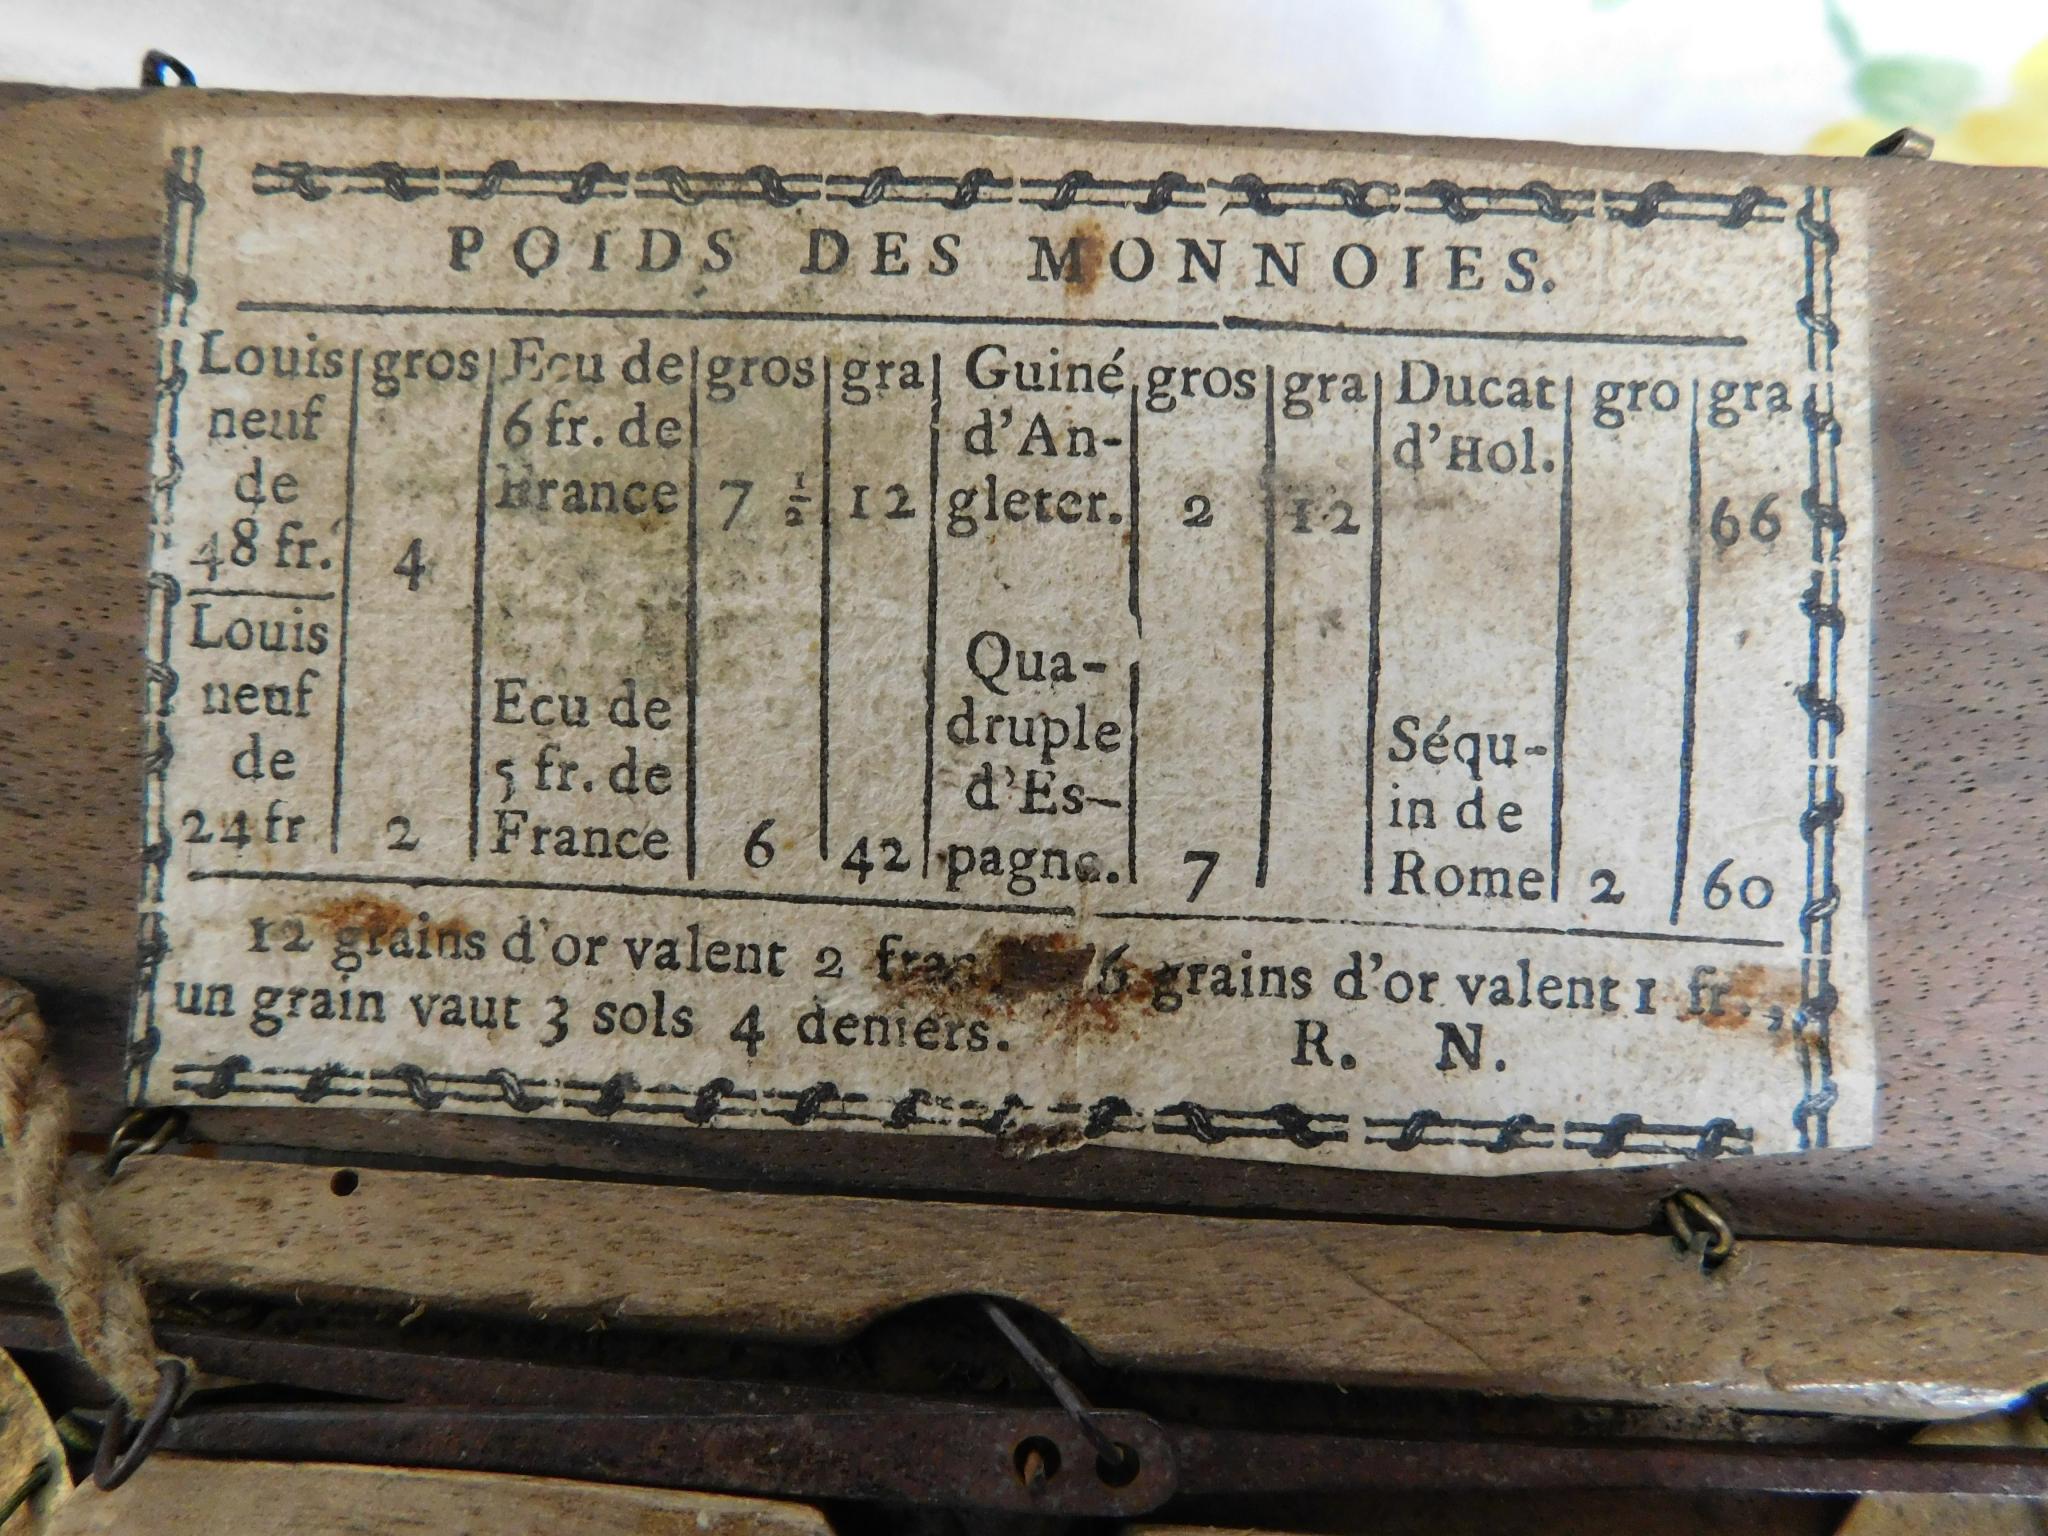 POIDS DES MONNOIES.
Louis gros Ecu de gros gra Guiné gros gra Ducat gro gra
neuf 6 fr. de d'An- d'Hol.
de France 7 ½ 12 gleter. 2 12 66
48 fr. 4
Louis Qua-
neuf Ecu de druple Séqu-
de 5 fr. de d'Es- in de
24 fr 2 France 6 42 pagne. 7 Rome 2 60
12 grains d'or valent 2 6 grains d'or valent 1 fr.,
un grain vaut 3 sols 4 deniers. R. N.